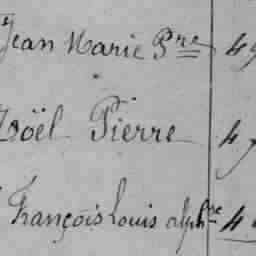 Jean Marie Pre 49
Noël Pierre 4
François Louis alphse 4